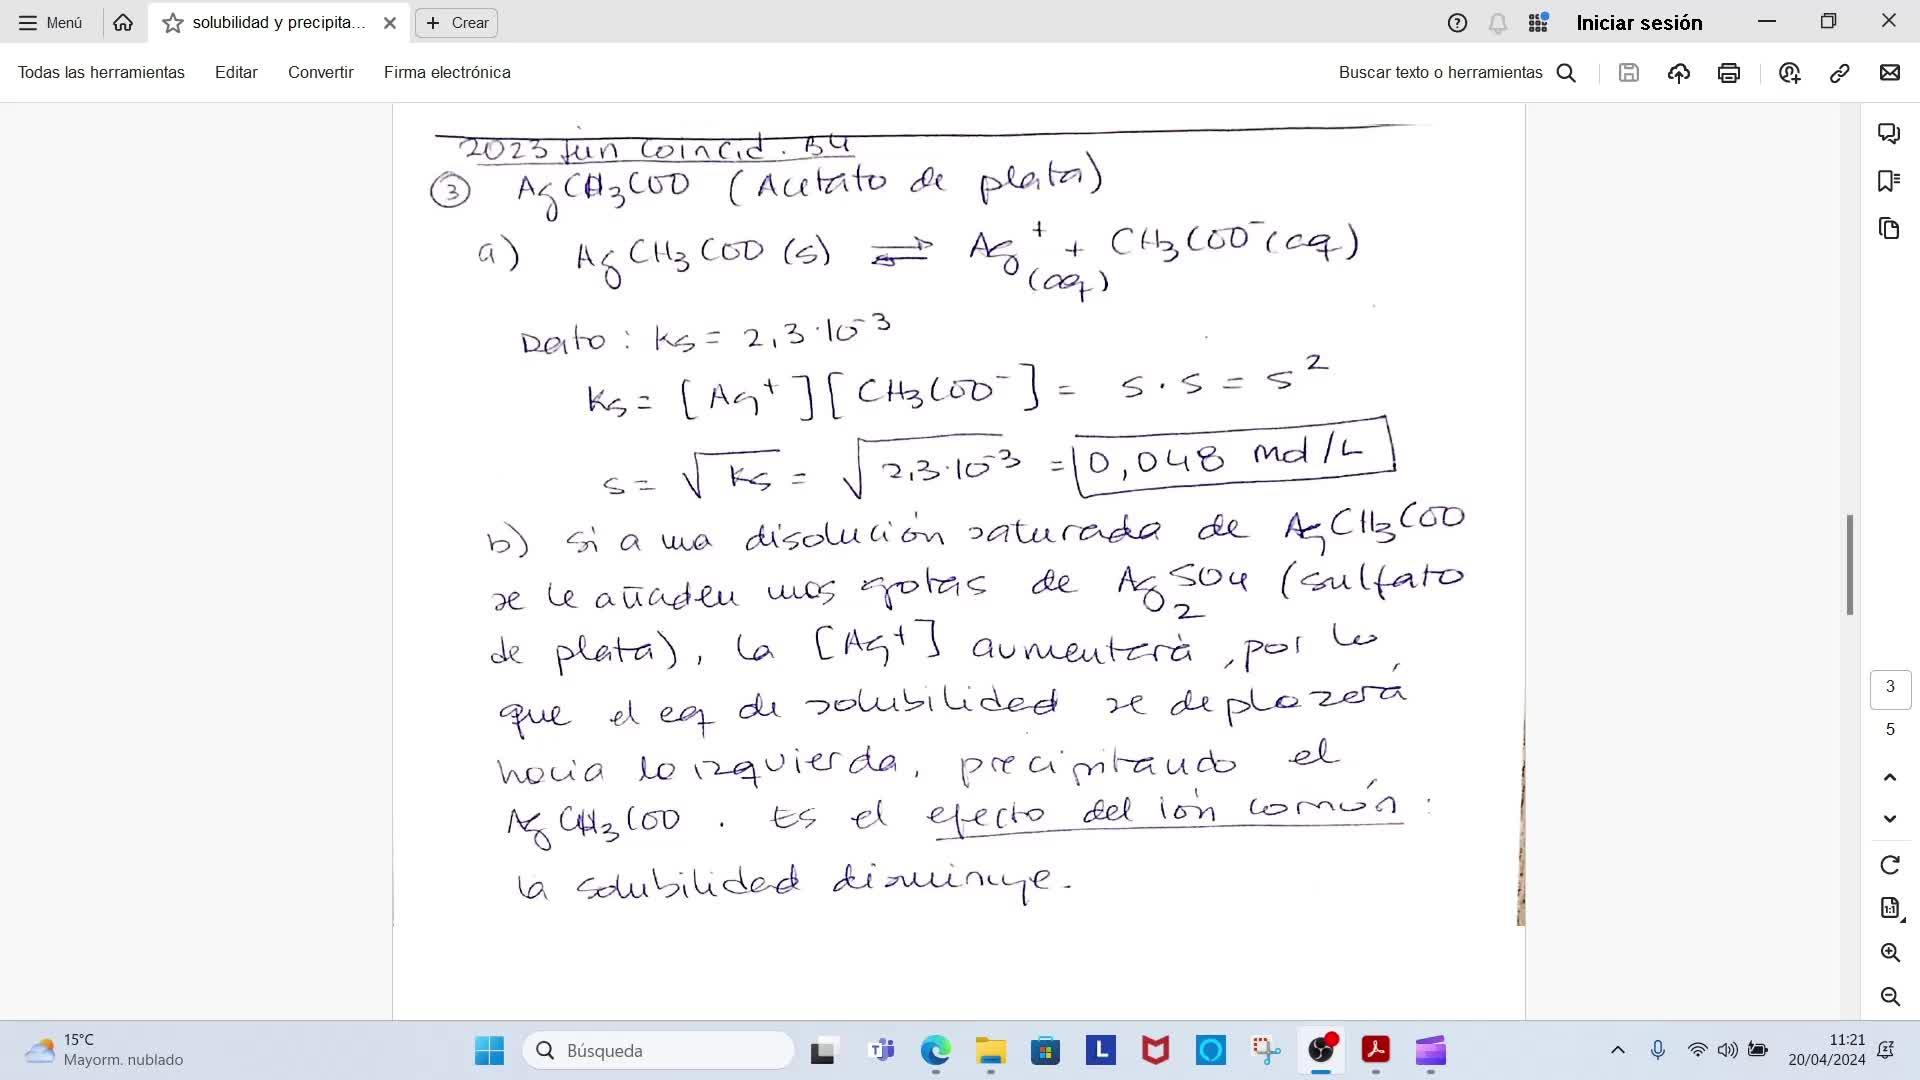 Menú
solubilidad y precipita...
Crear
Iniciar sesión
Todas las herramientas
Editar
Convertir
Firma electrónica
Buscar texto o herramientas
2023 Jun Coincid. B4
③ AgCH₃COO (Acetato de plata)
a) AgCH₃COO (s) ⇌ Ag⁺(aq) + CH₃COO⁻(aq)
Dato: Ks = 2,3·10⁻³
Ks = [Ag⁺][CH₃COO⁻] = s·s = s²
s = √Ks = √2,3·10⁻³ = 0,048 mol/L
b) Si a una disolución saturada de AgCH₃COO
se le añaden unas gotas de Ag₂SO₄ (sulfato
de plata), la [Ag⁺] aumentará, por lo
que el eq de solubilidad se deplazará
hacia la izquierda, precipitando el
AgCH₃COO. Es el efecto del ión común:
la solubilidad disminuye.
3
5
15°C
Mayorm. nublado
Búsqueda
11:21
20/04/2024